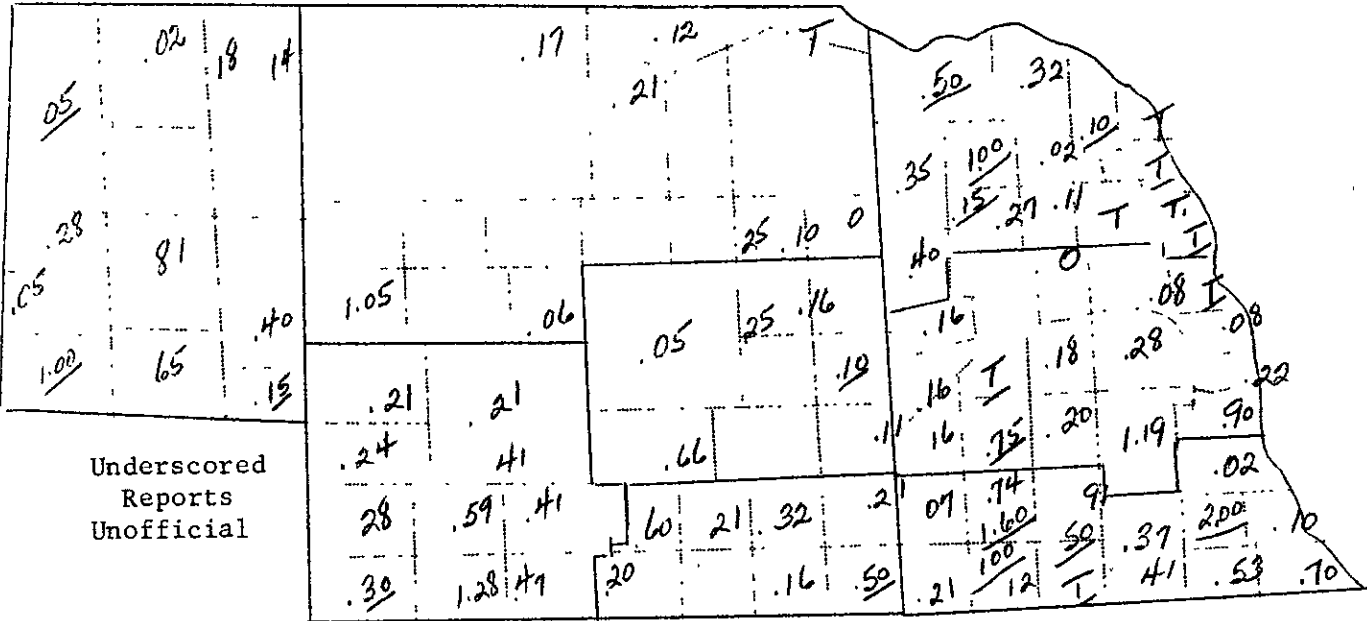 .02 .18 14 .17 .12 T
05 .21 .50 .32
.10 T
.35 1.00 .02 T
.15 .27 .11 T T.
.28 81 .25 .10 0 .40 0 I
.05 1.05 .06 .05 .25 .16 .16 .08 I .08
.40 .18 .28
1.00 65 .15 .21 .21 .10 .16 T .22
.24 41 .66 .11 16 .75 .20 1.19 .90
Underscored
Reports
Unofficial
.02
28 .59 .41 60 21 .32 .21 07 .74 91 2.00
1.60 50 .37 .10
.30 1.28 .47 .20 .16 .50 .21 1.00 12 T 41 .53 .70